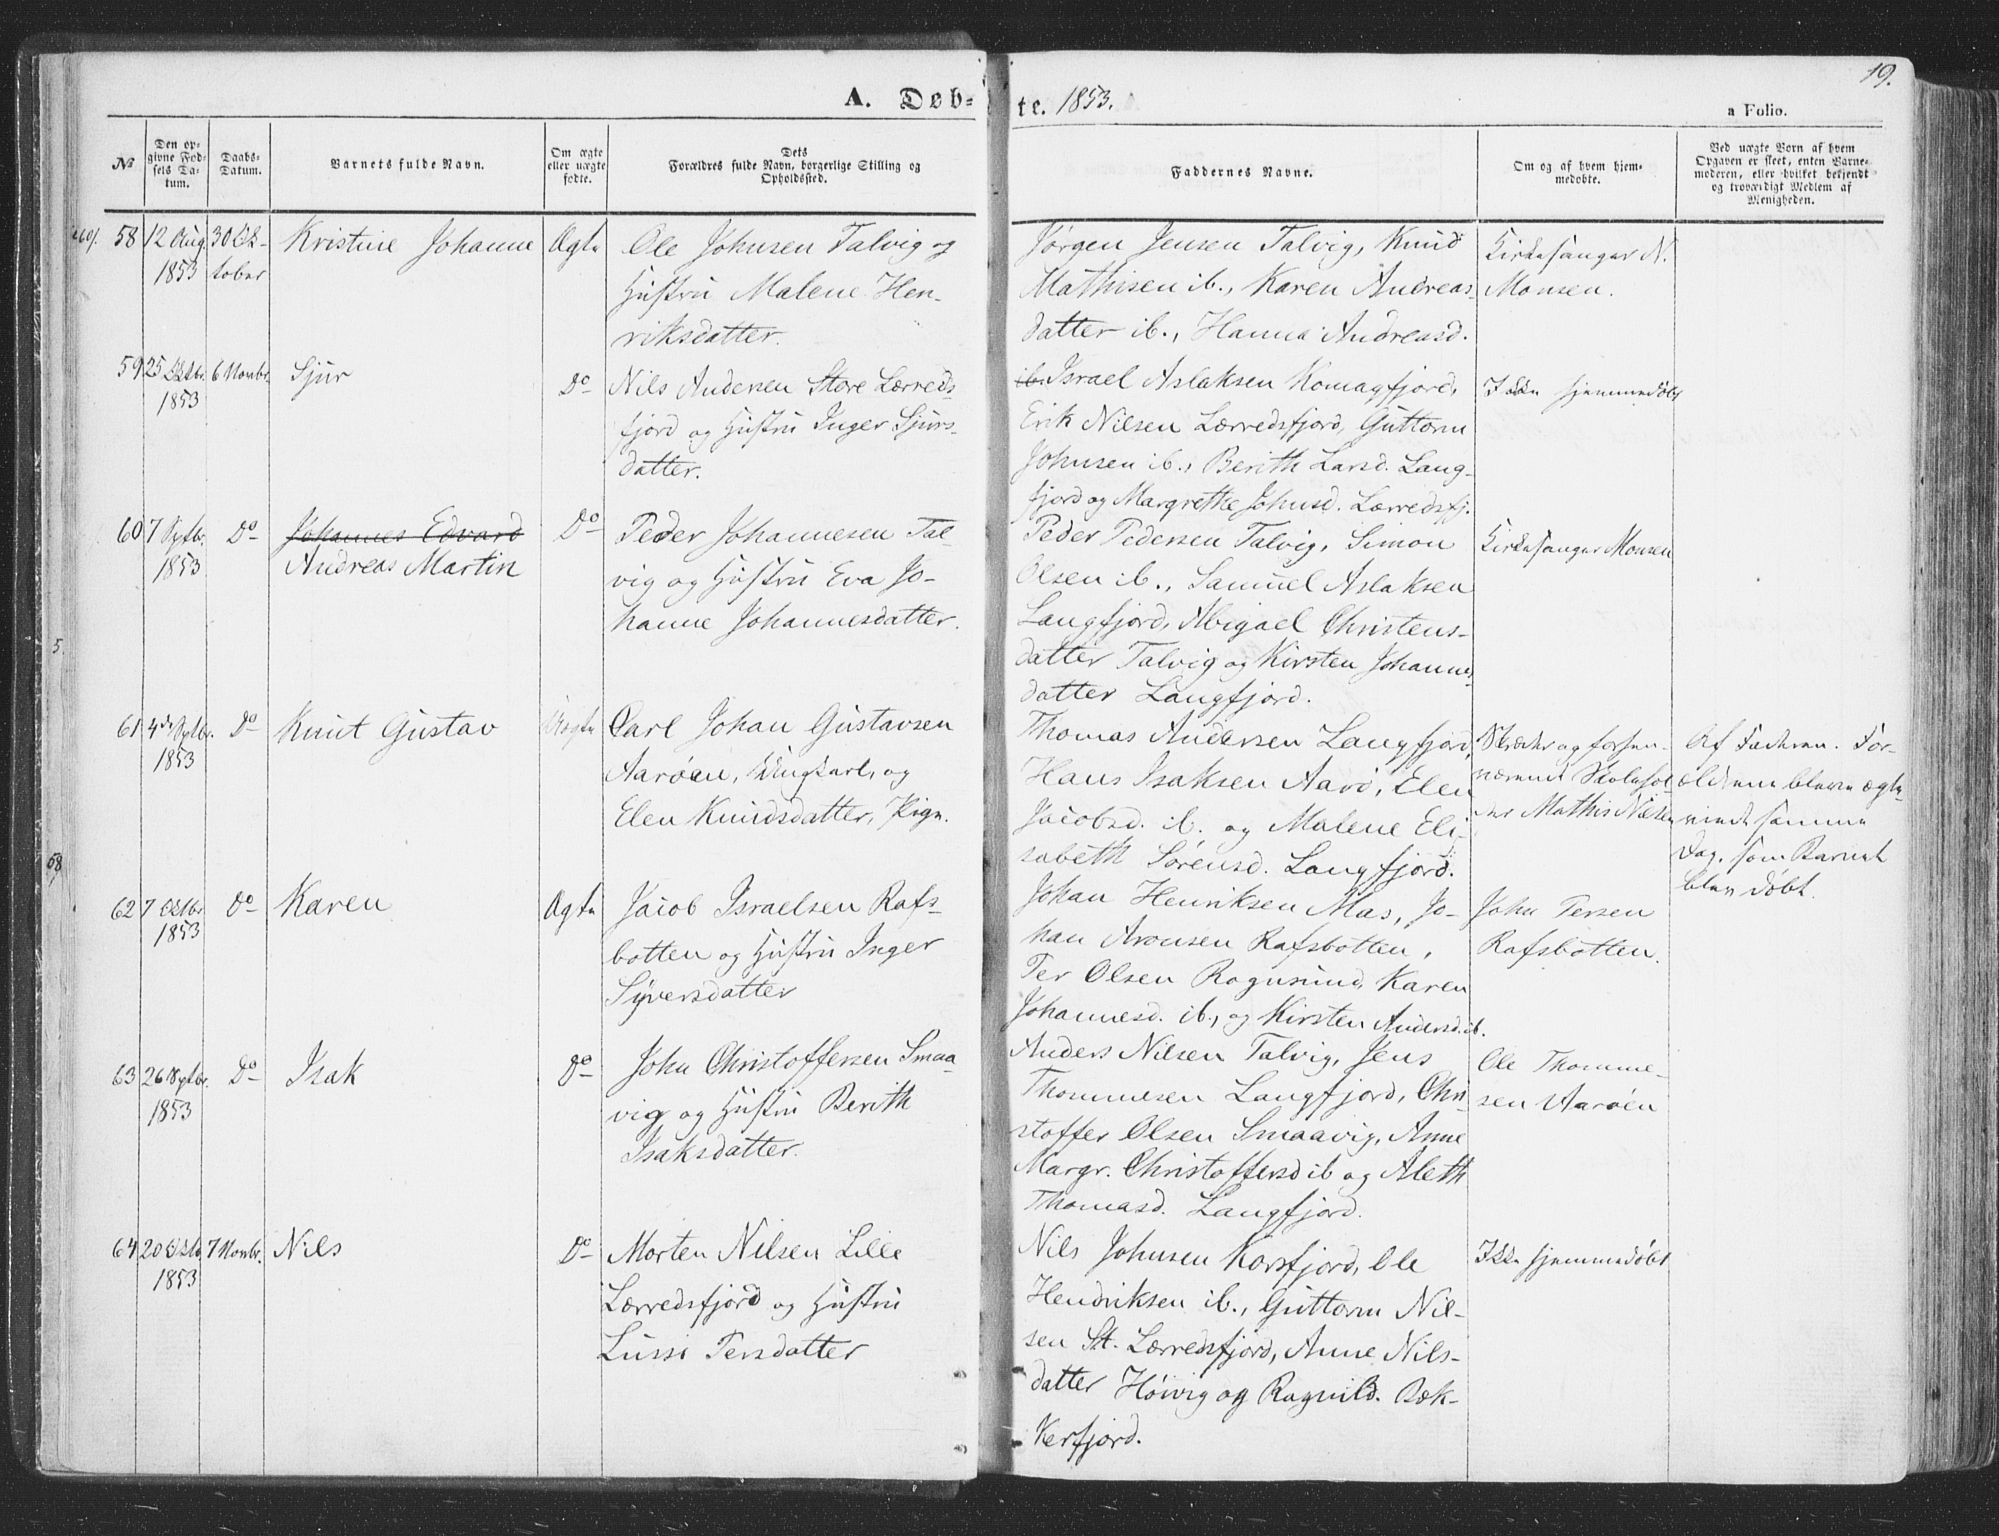 A. Døb-
te. 1853.
19.
a Folio.
No
Den op-
givne Fød-
sels Da-
tum.
Daabs-
Datum.
Barnets fulde Navn.
Om ægte
eller uægte
fødte.
Dets
Forældres fulde Navn, borgerlige Stilling og
Opholdssted.
Faddernes Navne.
Om og af hvem hjem-
medøbte.
Ved uægte Børn af hvem
Opgaven er skeet, enten Barne-
moderen, eller hvilket bekjendt
og troværdigt Medlem af
Menigheden.
58
12 Aug.
1853
30 Ok-
tober
Kristine Johanne
Ægte
Ole Johnsen Talvig og
Hustru Malene Hen-
riksdatter.
Jørgen Jensen Talvig, Knud
Mathisen ib., Karen Andreas-
datter ib., Hanna Andreasd.
Kirkesanger N.
Monsen.
59
25 Oktbr.
1853
6 Novbr.
Sjur
Do
Nils Andersen Store Lerreds-
fjord og Hustru Inger Sjurs-
datter.
ib. Israel Aslaksen Komagfjord,
Erik Nilsen Lerredsfjord, Guttorm
Johnsen ib., Berith Larsd. Lang-
fjord og Margrethe Johnsd. Lerredsfj.
Ikke hjemmedøbt
60
7 Septbr.
1853
Do
Johannes Edvard
Andreas Martin
Do
Peder Johannesen Tal-
vig og Hustru Eva Jo-
hanne Johannesdatter.
Peder Pedersen Talvig, Simon
Olsen ib., Samuel Aslaksen
Langfjord, Abigael Christens-
datter Talvig og Kirsten Johannes-
datter Langfjord.
Kirkesanger Monsen
5.
61
4de Septbr.
1853
Do
Knut Gustav
Uægte
Carl Johan Gustavsen
Aarøen, Ungkarl, og
Elen Knudsdatter, Pige.
Thomas Andersen Langfjord,
Hans Isaksen Aarø, Elen
Jacobsd. ib. og Malene Eli-
sabeth Sørensd. Langfjord.
og forhen-
værende Skolehol-
der Mathis Nilsen
Af Faderen. For-
ældrene bleve ægte-
viede samme
Dag, som Barnet
blev døbt.
62
7 Oktbr.
1853
Do
Karen
Ægte
Jacob Israelsen Rafs-
botten og Hustru Inger
Syversdatter
Johan Henriksen Mas, Jo-
han Aronsen Rafsbotten,
Per Olsen Rognsund, Karen
Johannesd. ib., og Kirsten Andersd. ib.
John Persen
Rafsbotten.
63
26 Septbr.
1853
Do
Isak
Do
John Christoffersen Smaa-
vig og Hustru Berith
Isaksdatter.
Anders Nilsen Talvig, Jens
Thommesen Langfjord, Chri-
stoffer Olsen Smaavig, Anne
Margr. Christoffersd ib og Aleth
Thomasd. Langfjord.
Ole Thomme-
sen Aarøen
64
20 Oktb.
1853
7 Novbr.
Nils
Do
Morten Nilsen Lille
Lerredsfjord og Hustru
Lussi Persdatter
Nils Johnsen Korsfjord, Ole
Hendriksen ib., Guttorm Nil-
sen St. Lerredsfjord, Anne Nils-
datter Høivig og Ragnild. Bek-
kerfjord.
Ikke hjemmedøbt